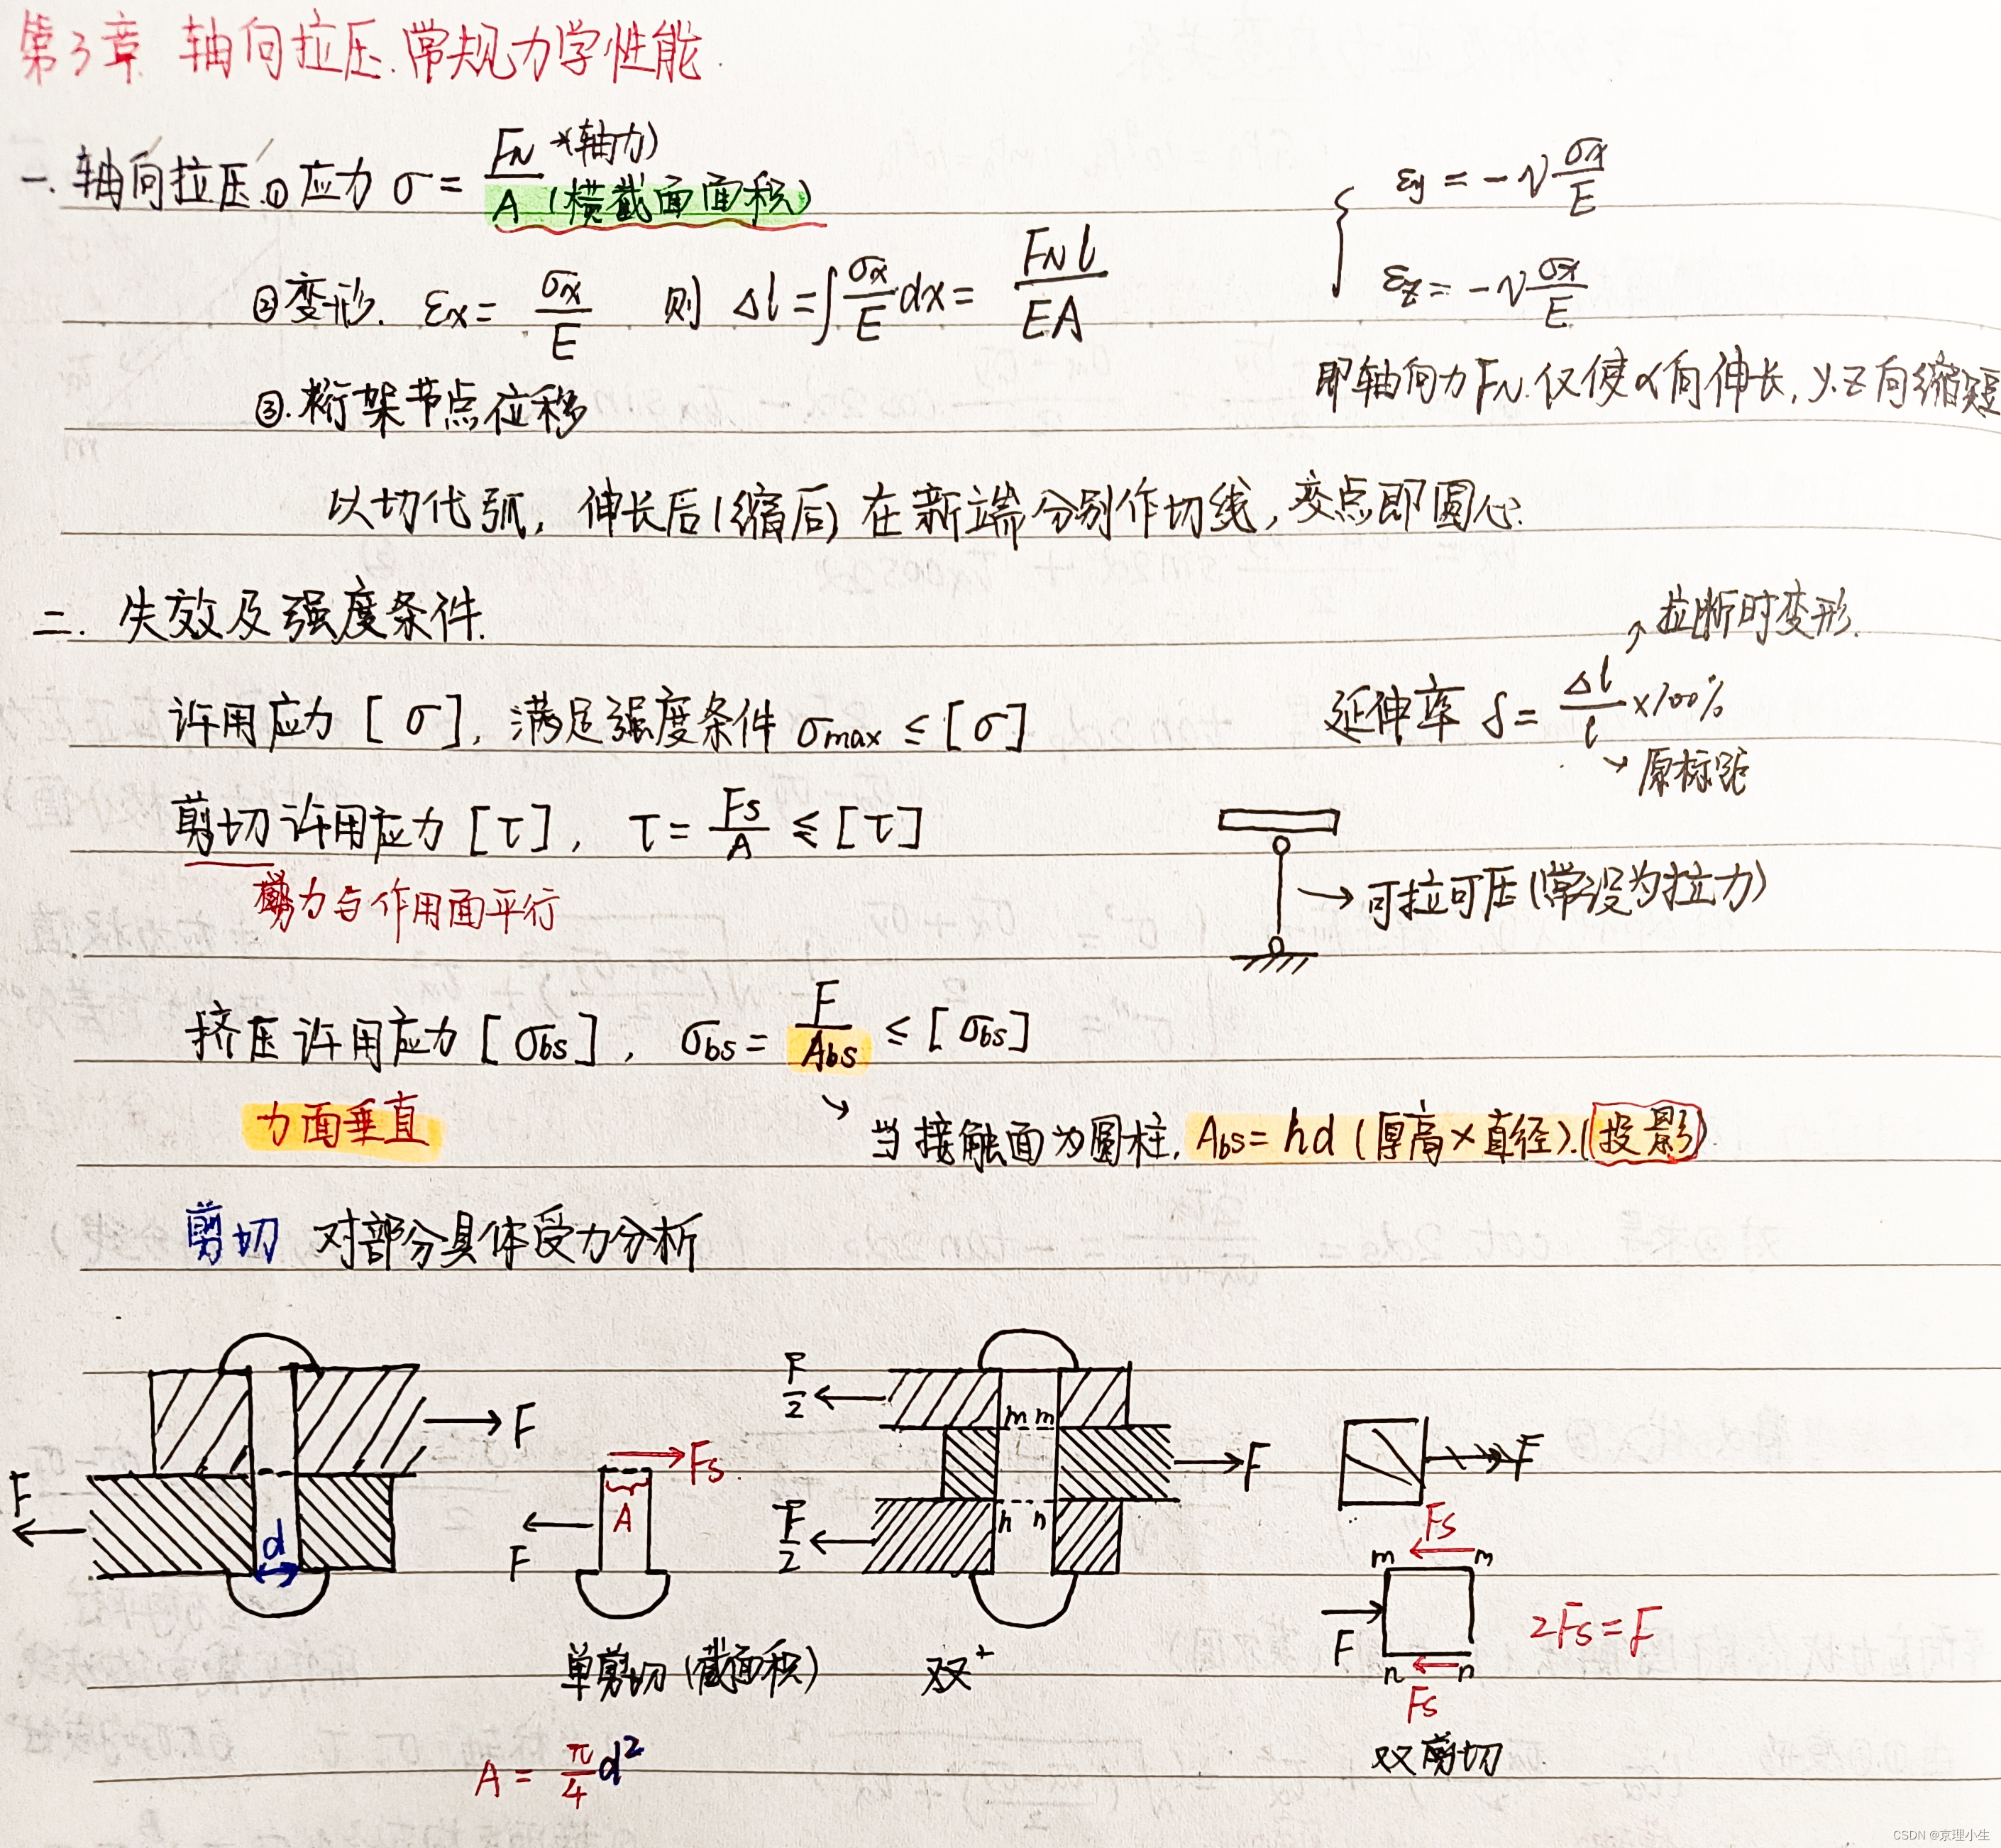 第3章 轴向拉压.常规力学性能.
一. 轴向拉压.① 应力 σ = FN (轴力) / A (横截面面积)
εy = -ν σx/E
εz = -ν σx/E
②变形. εx = σx/E 则 Δl = ∫ σx/E dx = FNl/EA
即轴向力FN.仅使x向伸长, y.z向缩短
③.桁架节点位移
以切代弧, 伸长后(缩后) 在新端分别作切线, 交点即圆心.
二. 失效及强度条件.
拉断时变形.
许用应力 [σ], 满足强度条件 σmax ≤ [σ]
延伸率 δ = Δl/l ×100%
原标距
剪切许用应力 [τ], τ = Fs/A ≤ [τ]
剪力与作用面平行
可拉可压(常设为拉力)
挤压许用应力 [σbs], σbs = F/Abs ≤ [σbs]
力面垂直
当接触面为圆柱, Abs = hd (厚高×直径).(投影)
剪切 对部分具体受力分析
F
F
d
Fs.
A
F
F/2
m m
F
F/2
n n
F
Fs
m m
F
n n
Fs
2Fs = F
单剪切 (截面积)
双"
双剪切
A = π/4 d²
CSDN @京理小生